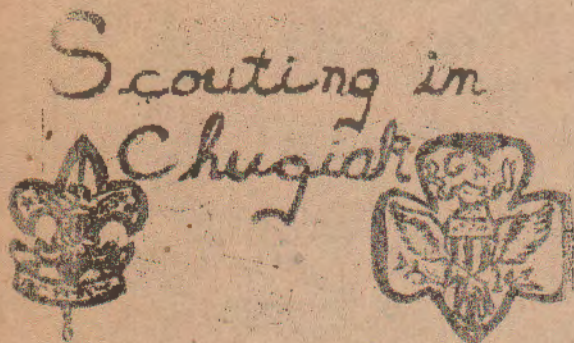 Scouting in
Chugiak